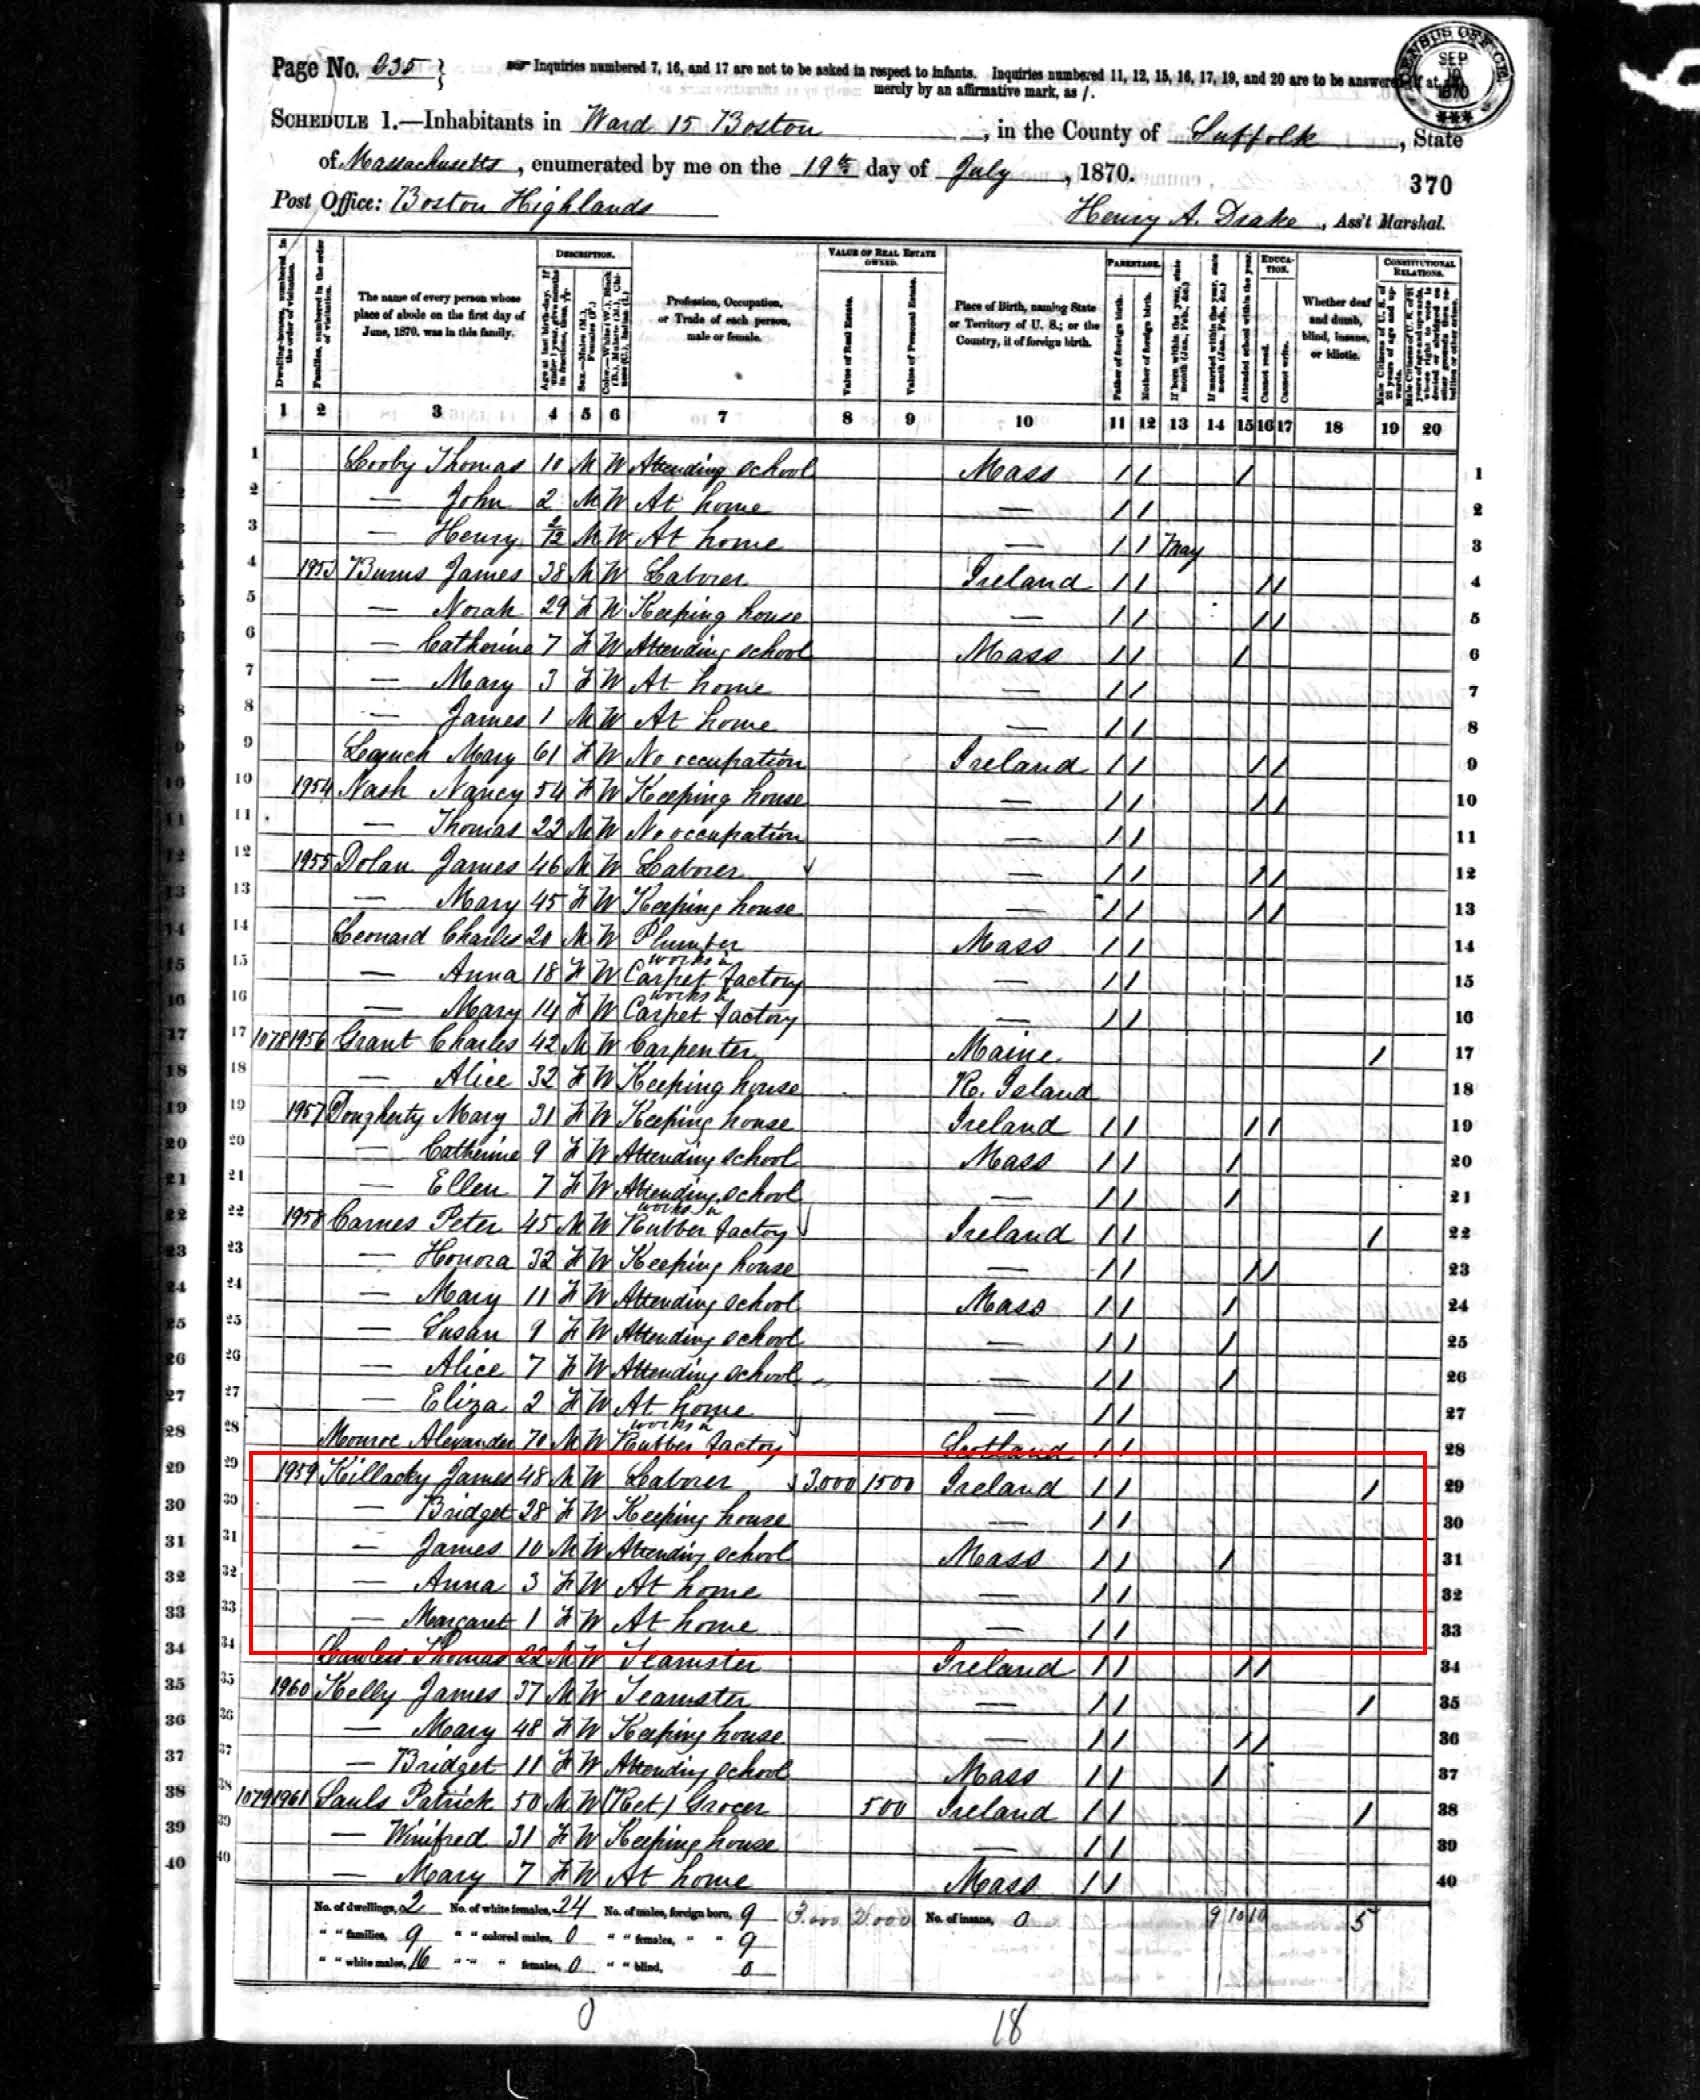 Page No. 235
Inquiries numbered 7, 16, and 17 are not to be asked in respect to infants. Inquiries numbered 11, 12, 15, 16, 17, 19, and 20 are to be answered if at all
merely by an affirmative mark, as /.
CENSUS OFFICE SEP 1870
SCHEDULE 1.—Inhabitants in Ward 15 Boston, in the County of Suffolk, State
of Massachusetts, enumerated by me on the 19th day of July, 1870.
370
Post Office: Boston Highlands
Henry A. Drake, Ass't Marshal.
Dwelling-houses, numbered in the order of visitation. Families, numbered in the order of visitation. The name of every person whose place of abode on the first day of June, 1870, was in this family. DESCRIPTION. Profession, Occupation, or Trade of each person, male or female. VALUE OF REAL ESTATE OWNED. Value of Real Estate. Value of Personal Estate. Place of Birth, naming State or Territory of U. S.; or the Country, if of foreign birth. PARENTAGE. Father of foreign birth. Mother of foreign birth. If born within the year, state month (Jan., Feb., &c.) If married within the year, state month (Jan., Feb., &c.) Attended school within the year. EDUCATION. Cannot read. Cannot write. Whether deaf and dumb, blind, insane, or idiotic. CONSTITUTIONAL RELATIONS.
1 2 3 4 5 6 7 8 9 10 11 12 13 14 15 16 17 18 19 20
1 Looby Thomas 10 M W Attending school Mass / / / 1
2 — John 2 M W At home — / / 2
3 — Henry 2/12 M W At home — / / May 3
4 1953 Burns James 38 M W Laborer Ireland / / / / 4
5 — Norah 29 F W Keeping house — / / / / 5
6 — Catherine 7 F W Attending school Mass / / / 6
7 — Mary 3 F W At home — / / 7
8 — James 1 M W At home — / / 8
9 Mary 61 F W No occupation Ireland / / / / 9
10 1954 Nash Nancy 54 F W Keeping house — / / / / 10
11 — Thomas 22 M W No occupation — / / 11
12 1955 Dolan James 46 M W Laborer — / / / / 12
13 — Mary 45 F W Keeping house — / / / / 13
14 Leonard Charles 20 M W Plumber Mass / / 14
15 — Anna 18 F W works in Carpet factory — / / 15
16 — Mary 14 F W works in Carpet factory — / / 16
17 1078 1956 Grant Charles 42 M W Carpenter Maine / 17
18 — Alice 32 F W Keeping house R. Island 18
19 1957 Dougherty Mary 31 F W Keeping house Ireland / / / / 19
20 — Catherine 9 F W Attending school Mass / / / 20
21 — Ellen 7 F W Attending school — / / / 21
22 1958 Carnes Peter 45 M W works in Rubber factory Ireland / / / 22
23 — Honora 32 F W Keeping house — / / / / 23
24 — Mary 11 F W Attending school Mass / / / 24
25 — Susan 9 F W Attending school — / / / 25
26 — Alice 7 F W Attending school — / / / 26
27 — Eliza 2 F W At home — / / 27
28 Monroe Alexander 70 M W works in Rubber factory Scotland / / 28
29 1959 Killacky James 48 M W Laborer 3.000 1500 Ireland / / / 29
30 — Bridget 28 F W Keeping house — / / 30
31 — James 10 M W Attending school Mass / / / 31
32 — Anna 3 F W At home — / / 32
33 — Margaret 1 F W At home — / / 33
34 Lawless Thomas 22 M W Teamster Ireland / / / / 34
35 1960 Kelly James 37 M W Teamster — / / / 35
36 — Mary 48 F W Keeping house — / / / / 36
37 — Bridget 11 F W Attending school Mass / / / 37
38 1079 1961 Sauls Patrick 50 M W (Ret) Grocer 500 Ireland / / / 38
39 — Winifred 31 F W Keeping house — / / 39
40 — Mary 7 F W At home Mass / / 40
No. of dwellings, 2 No. of white females, 24 No. of males, foreign born, 9 3.000 2.000 No. of insane, 0 9 10 10 5
" " families, 9 " " colored males, 0 " " females, " " 9
" " white males, 16 " " " females, 0 " " blind, 0
0 18